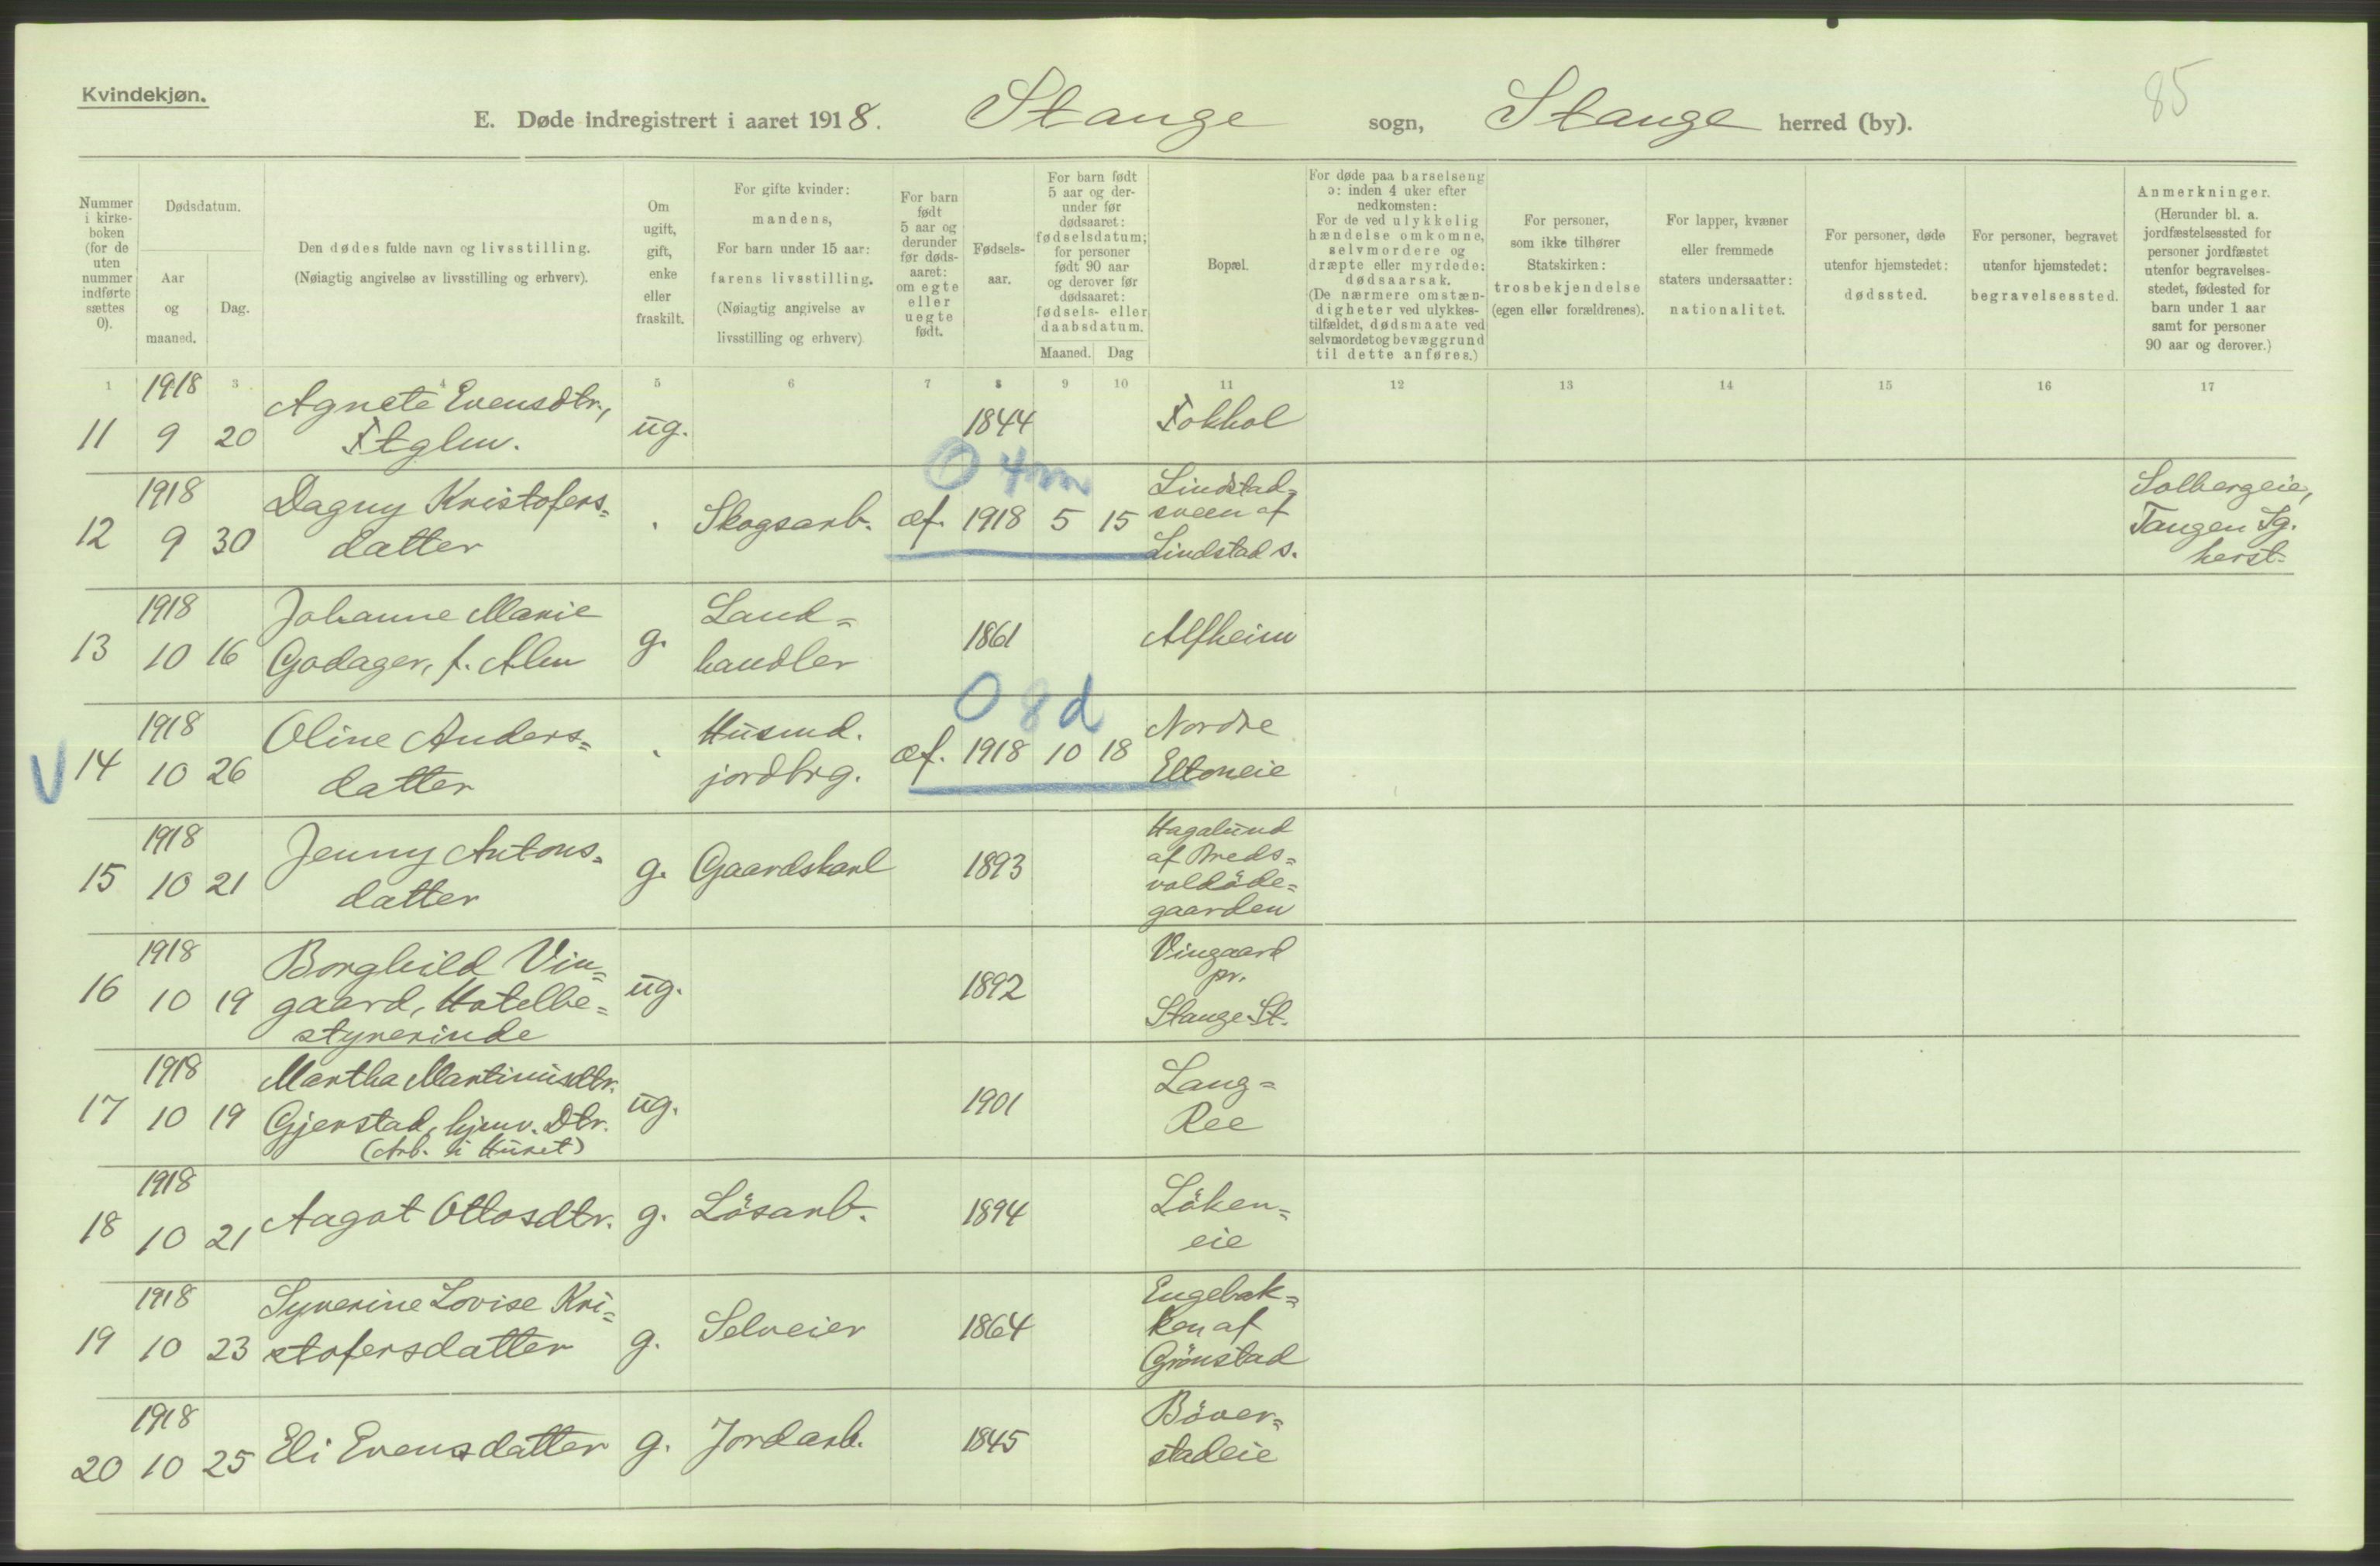 Kvindekjøn.
85
E. Døde indregistrert i aaret 1918. Stange sogn, Stange herred (by).
Nummer i kirke-boken (for de uten nummer indførte sættes 0).
Dødsdatum.
Aar og maaned.
Dag.
Den dødes fulde navn og livsstilling.
(Nøiagtig angivelse av livsstilling og erhverv).
Om ugift, gift, enke eller fraskilt.
For gifte kvinder: mandens,
For barn under 15 aar: farens livsstilling.
(Nøiagtig angivelse av livsstilling og erhverv)
For barn født 5 aar og derunder før døds-aaret: om egte eller uegte født.
Fødsels-aar.
For barn født 5 aar og der-under før dødsaaret: fødselsdatum; for personer født 90 aar og derover før dødsaaret: fødsels- eller daabsdatum.
Maaned. Dag
Bopæl.
For døde paa barselseng ɔ: inden 4 uker efter nedkomsten:
For de ved ulykkelig hændelse omkomne, selvmordere og dræpte eller myrdede: dødsaarsak.
(De nærmere omstæn-digheter ved ulykkes-tilfældet, dødsmaate ved selvmordet og bevæggrund til dette anføres.)
For personer, som ikke tilhører Statskirken: trosbekjendelse (egen eller forældrenes).
For lapper, kvæner eller fremmede staters undersaatter: nationalitet.
For personer, døde utenfor hjemstedet: dødssted.
For personer, begravet utenfor hjemstedet: begravelsessted.
Anmerkninger.
(Herunder bl. a. jordfæstelsessted for personer jordfæstet utenfor begravelses-stedet, fødested for barn under 1 aar samt for personer 90 aar og derover.)
1 3 4 5 6 7 8 9 10 11 12 13 14 15 16 17
1918 Agnete Evensdtr.,
11 9 20 Ftglm. ug. 1844 Fokhol
0 4m
1918 Dagny Kristofers= Lindstad= Solbergeie,
12 9 30 datter " Skogsarb. æf. 1918 5 15 sveen af Tangen Sg.
Lindstad s. herst.
1918 Johanne Marie Land=
13 10 16 Godager, f. Alm g. handler 1861 Alfheim
0 8 d
1918 Oline Anders= Husmd. Nordre
V 14 10 26 datter " jordbrg. æf. 1918 10 18 Eltoneie
1918 Jenny Antons= Hagalund
15 10 21 datter g. Gaardskarl 1893 af Breds=
voldöde=
gaarden
1918 Borghild Vin= Vingaard
16 10 19 gaard, Hotelbe= ug. 1892 pr.
styrerinde Stange St.
1918 Martha Martinusdtr. Lang=
17 10 19 Gjerstad, hjmv. Dtr. ug. 1901 Ree
(Arb. i Huset)
1918 Löken=
18 10 21 Aagot Ottosdtr. g. Lösarb. 1894 eie
1918 Syverine Lovise Kri= Engebak=
19 10 23 stofersdatter g. Selveier 1864 ken af
Grönstad
1918 Böver=
20 10 25 Eli Evensdatter g. Jordarb. 1845 stadeie